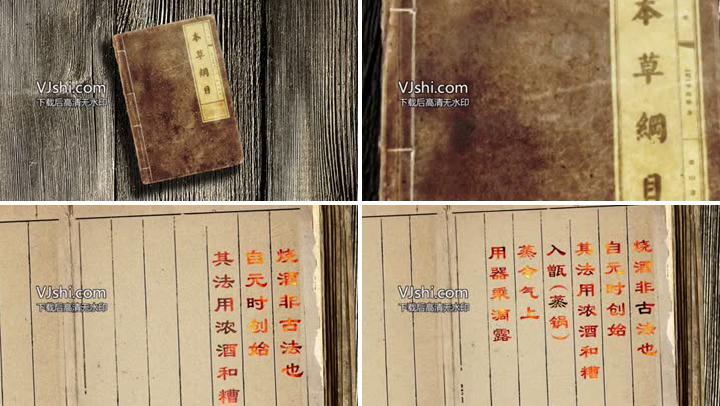 VJshi.com
下载后高清无水印
本草綱目
VJshi.com
下载后高清无水印
本草綱目
VJshi.com
下载后高清无水印
烧酒非古法也
自元时创始
其法用浓酒和糟
VJshi.com
下载后高清无水印
烧酒非古法也
自元时创始
其法用浓酒和糟
入甑（蒸锅）
蒸令气上
用器乘滴露